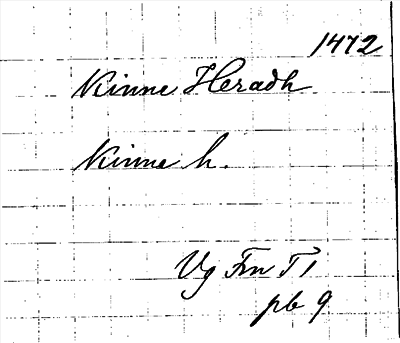 1472
Kinne Heradh
Kinne h.
Vg Frn T 1
pb 9